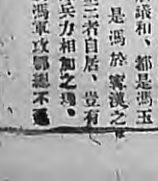 議和、都是馮玉
是馮於寗漢之
二者自居、豈有
兵力相加之理、
馮軍攻鄂總不